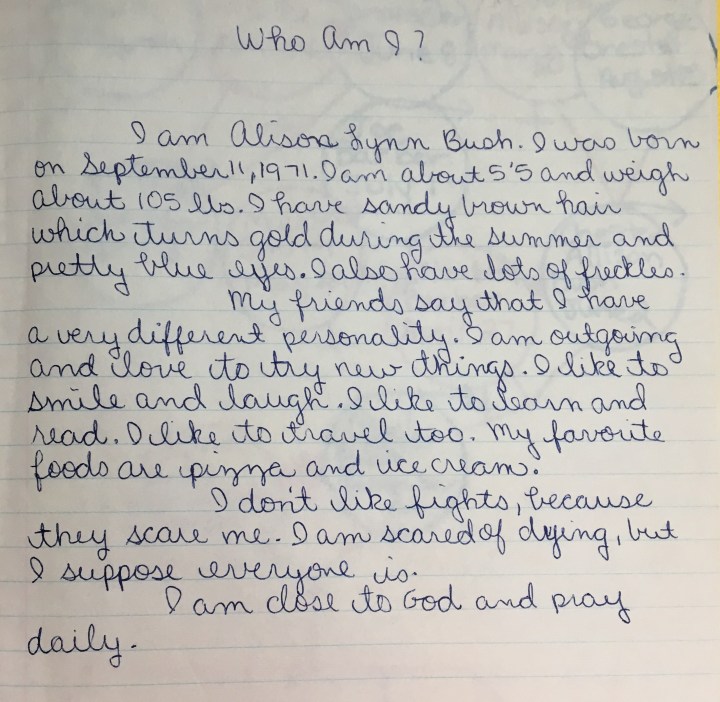 Who Am I?
I am Alison Lynn Bush. I was born
on September 11, 1971. I am about 5'5 and weigh
about 105 lbs. I have sandy brown hair
which turns gold during the summer and
pretty blue eyes. I also have lots of freckles.
My friends say that I have
a very different personality. I am outgoing
and love to try new things. I like to
smile and laugh. I like to learn and
read. I like to travel too. My favorite
foods are pizza and ice cream.
I don't like fights, because
they scare me. I am scared of dying, but
I suppose everyone is.
I am close to God and pray
daily.